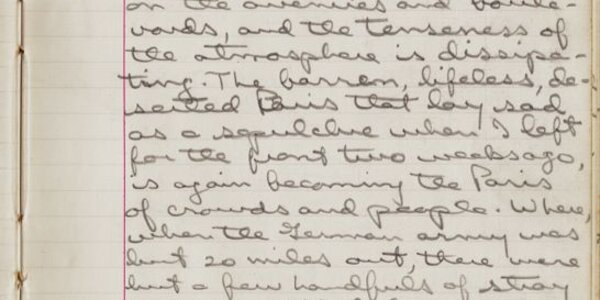 on the avenues and boule-
vards, and the tenseness of
the atmosphere is dissipa-
ting. The barren, lifeless, de-
serted Paris that lay sad
as a sepulchre when I left
for the front two weeks ago,
is again becoming the Paris
of crowds and people. Where,
when the German army was
but 20 miles out, there were
but a few handfuls of stray